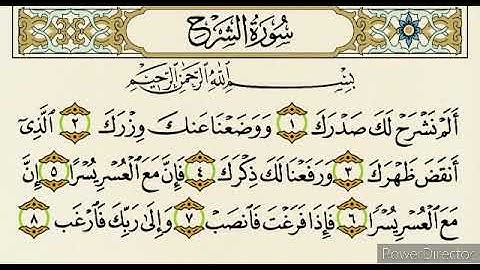 سُورَةُ الشَّرْحِ
بِسْمِ اللَّهِ الرَّحْمَٰنِ الرَّحِيمِ
أَلَمْ نَشْرَحْ لَكَ صَدْرَكَ ١ وَوَضَعْنَا عَنكَ وِزْرَكَ ٢ الَّذِي
أَنقَضَ ظَهْرَكَ ٣ وَرَفَعْنَا لَكَ ذِكْرَكَ ٤ فَإِنَّ مَعَ الْعُسْرِ يُسْرًا ٥ إِنَّ
مَعَ الْعُسْرِ يُسْرًا ٦ فَإِذَا فَرَغْتَ فَانصَبْ ٧ وَإِلَىٰ رَبِّكَ فَارْغَب ٨
PowerDirector